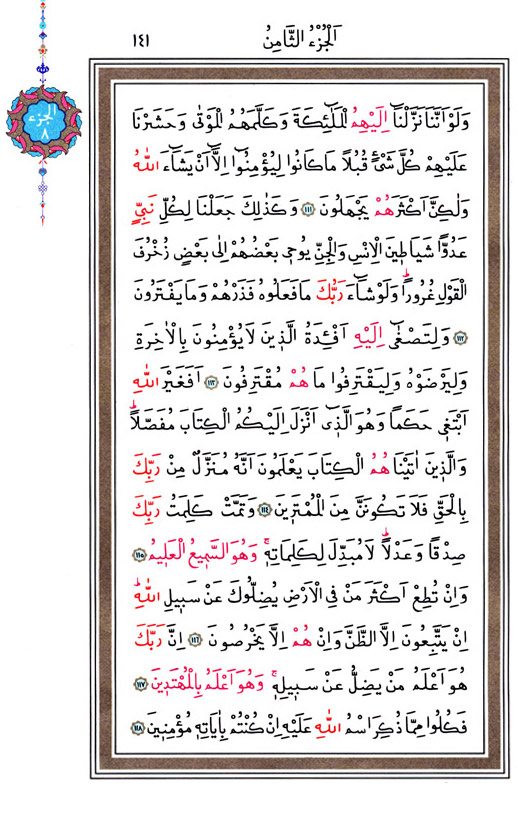 اَلْجُزْءُ الثَّامِنُ
١٤١
الجزء
٨
وَلَوْ اَنَّنَا نَزَّلْنَٓا اِلَيْهِمُ الْمَلٰٓئِكَةَ وَكَلَّمَهُمُ الْمَوْتٰى وَحَشَرْنَا
عَلَيْهِمْ كُلَّ شَيْءٍ قُبُلًا مَا كَانُوا لِيُؤْمِنُٓوا اِلَّٓا اَنْ يَشَٓاءَ اللّٰهُ
وَلٰكِنَّ اَكْثَرَهُمْ يَجْهَلُونَ ﴿١١١﴾ وَكَذٰلِكَ جَعَلْنَا لِكُلِّ نَبِيٍّ
عَدُوًّا شَيَاطٖينَ الْاِنْسِ وَالْجِنِّ يُوحٖي بَعْضُهُمْ اِلٰى بَعْضٍ زُخْرُفَ
الْقَوْلِ غُرُورًاۜ وَلَوْ شَٓاءَ رَبُّكَ مَا فَعَلُوهُ فَذَرْهُمْ وَمَا يَفْتَرُونَ
﴿١١٢﴾ وَلِتَصْغٰٓى اِلَيْهِ اَفْـِٔدَةُ الَّذٖينَ لَا يُؤْمِنُونَ بِالْاٰخِرَةِ
وَلِيَرْضَوْهُ وَلِيَقْتَرِفُوا مَا هُمْ مُقْتَرِفُونَ ﴿١١٣﴾ اَفَغَيْرَ اللّٰهِ
اَبْتَغٖي حَكَمًا وَهُوَ الَّذٖٓي اَنْزَلَ اِلَيْكُمُ الْكِتَابَ مُفَصَّلًاۜ
وَالَّذٖينَ اٰتَيْنَاهُمُ الْكِتَابَ يَعْلَمُونَ اَنَّهُ مُنَزَّلٌ مِنْ رَبِّكَ
بِالْحَقِّ فَلَا تَكُونَنَّ مِنَ الْمُمْتَرٖينَ ﴿١١٤﴾ وَتَمَّتْ كَلِمَتُ رَبِّكَ
صِدْقًا وَعَدْلًاۜ لَا مُبَدِّلَ لِكَلِمَاتِهٖۚ وَهُوَ السَّمٖيعُ الْعَلٖيمُ ﴿١١٥﴾
وَاِنْ تُطِعْ اَكْثَرَ مَنْ فِي الْاَرْضِ يُضِلُّوكَ عَنْ سَبٖيلِ اللّٰهِۜ
اِنْ يَتَّبِعُونَ اِلَّا الظَّنَّ وَاِنْ هُمْ اِلَّا يَخْرُصُونَ ﴿١١٦﴾ اِنَّ رَبَّكَ
هُوَ اَعْلَمُ مَنْ يَضِلُّ عَنْ سَبٖيلِهٖۚ وَهُوَ اَعْلَمُ بِالْمُهْتَدٖينَ ﴿١١٧﴾
فَكُلُوا مِمَّا ذُكِرَ اسْمُ اللّٰهِ عَلَيْهِ اِنْ كُنْتُمْ بِاٰيَاتِهٖ مُؤْمِنٖينَ ﴿١١٨﴾